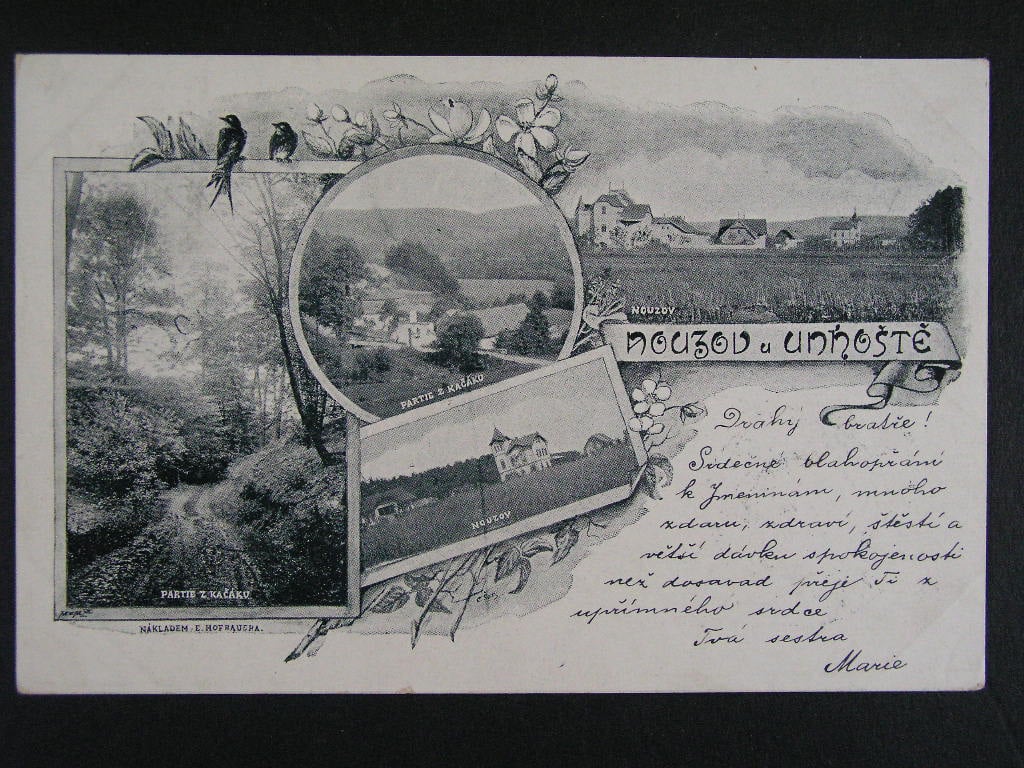 NOUZOV
NOUZOV u UNHOŠTĚ
PARTIE Z KAČÁKU
NOUZOV
PARTIE Z KAČÁKU
NÁKLADEM E. HOFBAUERA.
Drahý bratře!
Srdečné blahopřání
k Jmeninám, mnoho
zdaru, zdraví, štěstí a
větší dávku spokojenosti
než dosavad přeje Ti z
upřímného srdce
Tvá sestra
Marie